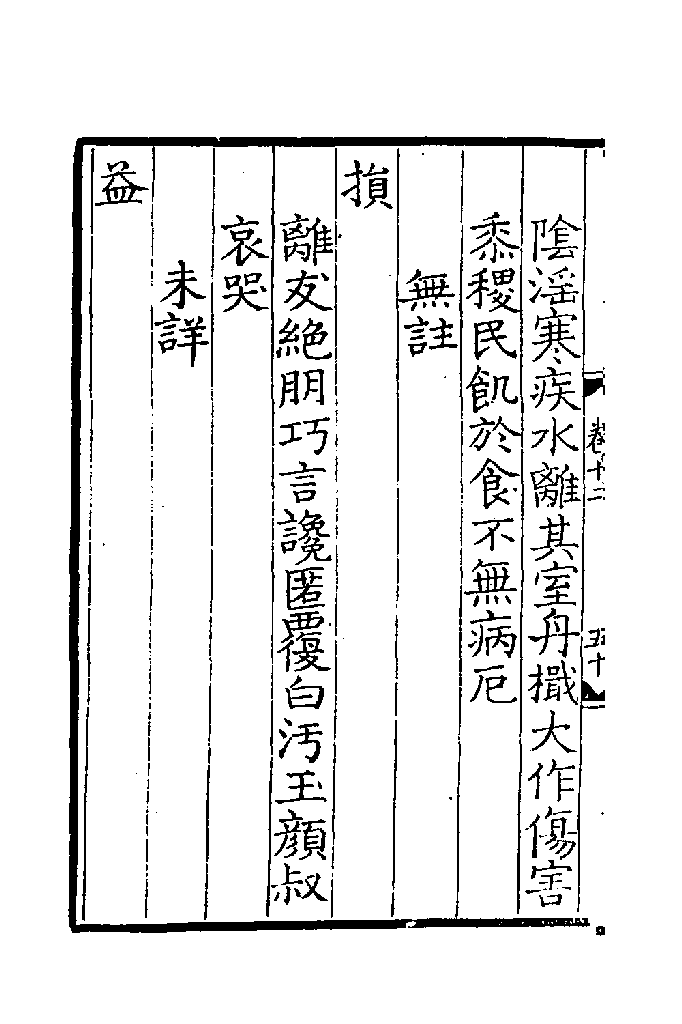 卷十二
五十
陰滛寒疾水離其室舟檝大作傷害
黍稷民飢於食不無病厄
無註
損
離友絶朋巧言讒匿覆白汚玉顔叔
哀哭
未詳
益